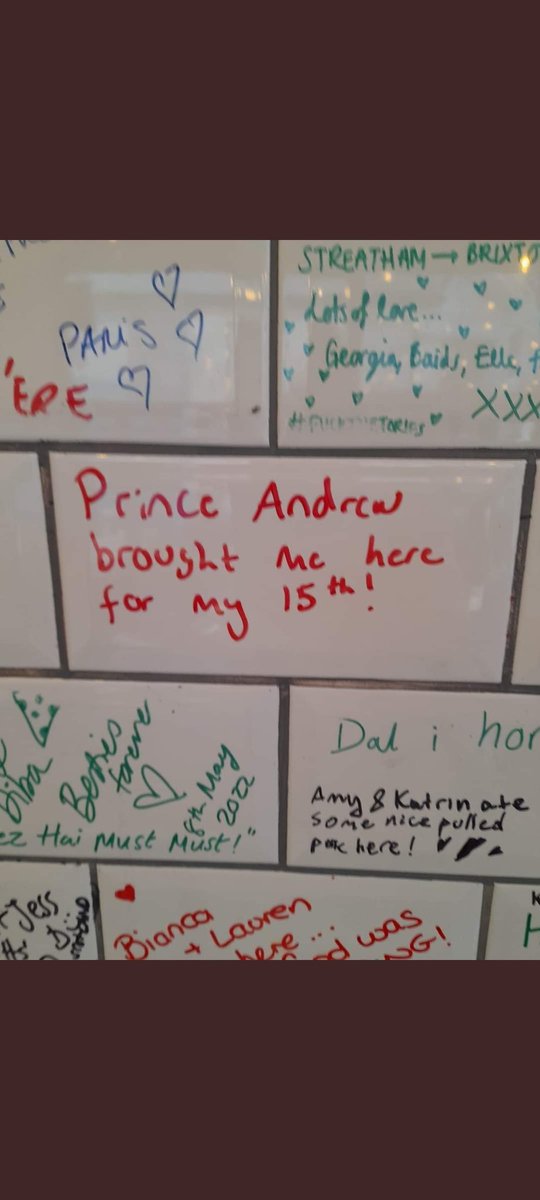 PARIS
ERE
STREATHAM → BRIXTO
Lots of love...
Georgia, Baids, Elle,
XXX
Prince Andrew
brought me here
for my 15th!
Besties
forever
8th May
2022
ez Hai Must Must!"
Dal i hor
Amy & Katrin ate
some nice pulled
pork here!
Jess
Bianca
+ Lauren
here...
was
NG!